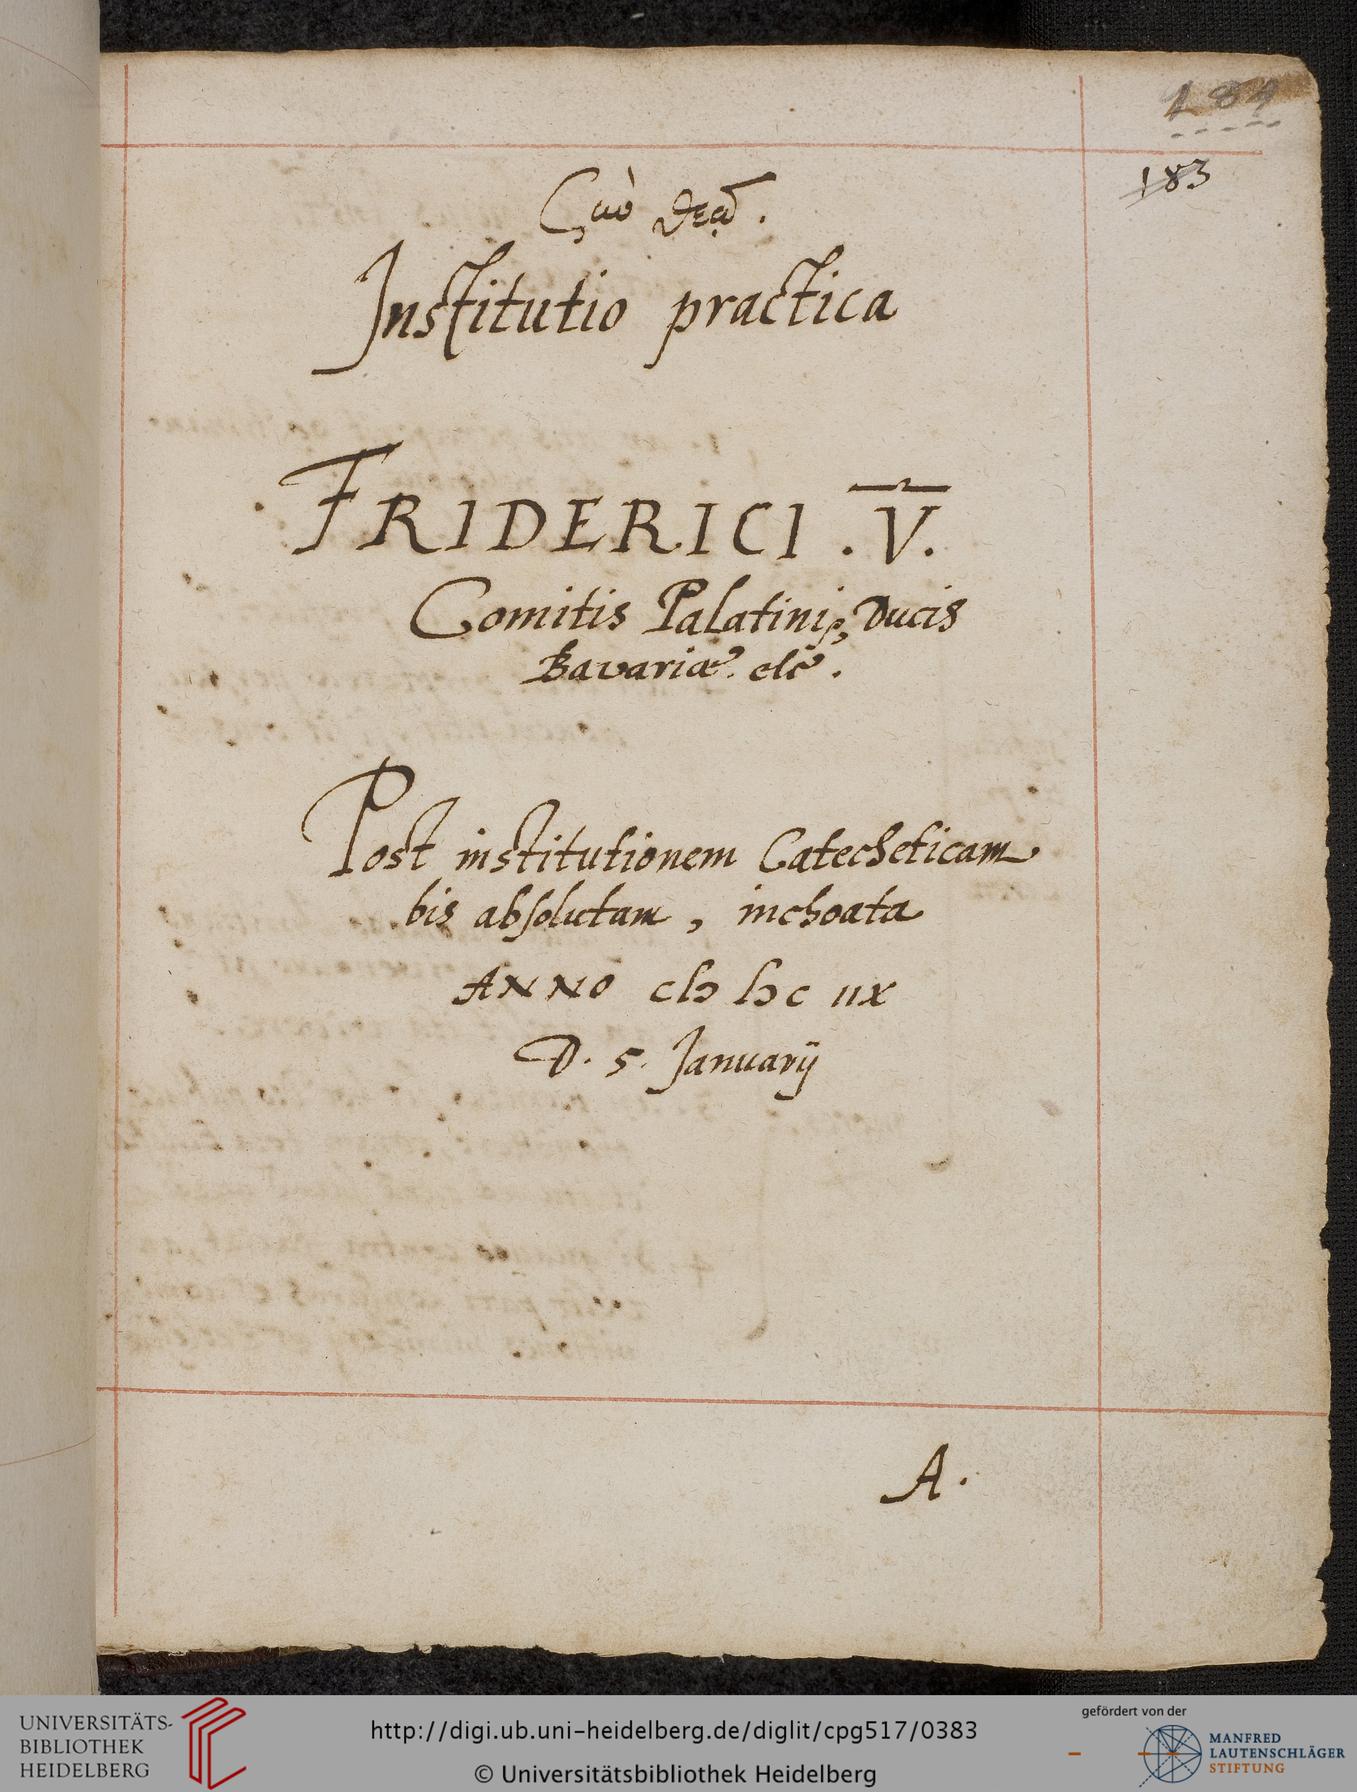 184
183
Σὺν Θεῷ.
Institutio practica
FRIDERICI . V.
Comitis Palatini R, Ducis
Bavariæ. etc.
Post institutionem Catecheticam
bis absolutam, inchoata
ANNO cIↄ Iↄ c iix
D. 5. Januarij
A.
gefördert von der
UNIVERSITÄTS-
BIBLIOTHEK
HEIDELBERG
http://digi.ub.uni-heidelberg.de/diglit/cpg517/0383
© Universitätsbibliothek Heidelberg
MANFRED
LAUTENSCHLÄGER
STIFTUNG